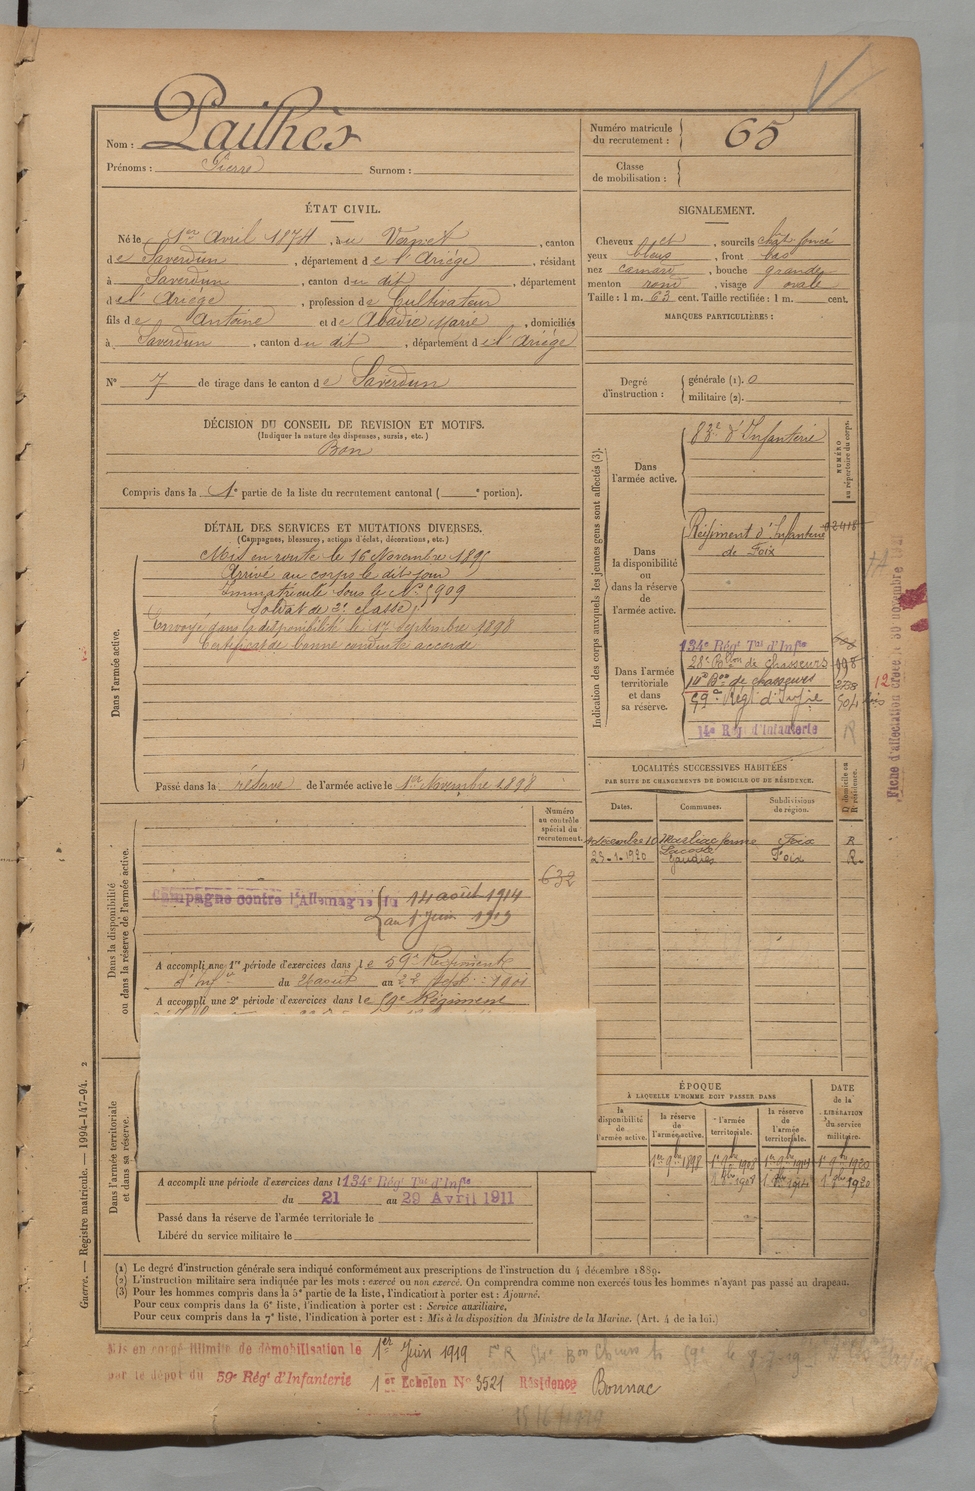 Nom : Pailhès
Prénoms : Pierre Surnom :
Numéro matricule du recrutement : 65
Classe de mobilisation :
ÉTAT CIVIL.
Né le 1er Avril 1874, à au Vernet, canton
de Saverdun, département de l'Ariége, résidant
à Saverdun, canton du dit, département
de l'Ariége, profession de Cultivateur
fils de Antoine et de Abadie Marie, domiciliés
à Saverdun, canton du dit, département de l'Ariége
N° 7 de tirage dans le canton de Saverdun
SIGNALEMENT.
Cheveux et, sourcils chat. foncé
yeux bleus, front bas
nez camard, bouche grande
menton rond, visage ovale
Taille : 1 m. 63 cent. Taille rectifiée : 1 m. cent.
MARQUES PARTICULIÈRES :
Degré d'instruction : générale (1). 0
militaire (2).
DÉCISION DU CONSEIL DE REVISION ET MOTIFS.
(Indiquer la nature des dispenses, sursis, etc.)
Bon
Compris dans la 1e partie de la liste du recrutement cantonal ( e portion).
DÉTAIL DES SERVICES ET MUTATIONS DIVERSES.
(Campagnes, blessures, actions d'éclat, décorations, etc.)
Dans l'armée active.
Mis en route le 16 Novembre 1895
Arrivé au corps le dit jour
Immatriculé sous le N° 5909
Soldat de 2e classe
Envoyé dans la disponibilité le 17 Septembre 1898
Certificat de bonne conduite accordé
Passé dans la réserve de l'armée active le 1er Novembre 1898
Indication des corps auxquels les jeunes gens sont affectés (3).
NUMÉRO au répertoire du corps.
Dans l'armée active.
83e d'Infanterie
Dans la disponibilité ou dans la réserve de l'armée active.
Régiment d'Infanterie
de Foix
02418
Dans l'armée territoriale et dans sa réserve.
134e Régt Tal d'Infie
28e Bon de chasseurs 998
14e Bon de chasseurs 2738
59e Régt d'Infie 504 bis
14e Régt d'Infanterie R
12
Fiche d'affectation créée le 30 novembre 1921
LOCALITÉS SUCCESSIVES HABITÉES
PAR SUITE DE CHANGEMENTS DE DOMICILE OU DE RÉSIDENCE.
Dates. Communes. Subdivisions de région. D domicile ou R résidence.
décembre 10 Marliac ferme Lacoste Foix R
25-1-1920 Gaudiès Foix R
Numéro au contrôle spécial du recrutement.
632
Dans la disponibilité ou dans la réserve de l'armée active.
Campagne contre l'Allemagne du 14 août 1914
au 1 Juin 1919
A accompli une 1re période d'exercices dans le 59e Régiment
d'Infie du 26 août au 22 Sept. 1901
A accompli une 2e période d'exercices dans le 59e Régiment
Dans l'armée territoriale et dans sa réserve.
A accompli une période d'exercices dans l 134e Régt Tal d'Infie
du 21 au 29 Avril 1911
Passé dans la réserve de l'armée territoriale le
Libéré du service militaire le
ÉPOQUE
A LAQUELLE L'HOMME DOIT PASSER DANS
DATE de la LIBÉRATION du service militaire.
la disponibilité de l'armée active. la réserve de l'armée active. l'armée territoriale. la réserve de l'armée territoriale.
1er 9bre 1898 1er 9bre 1908 1er 9bre 1914 1er 9bre 1920
1er 8bre 1908 1er 8bre 1914 1er 8bre 1920
(1) Le degré d'instruction générale sera indiqué conformément aux prescriptions de l'instruction du 4 décembre 1889.
(2) L'instruction militaire sera indiquée par les mots : exercé ou non exercé. On comprendra comme non exercés tous les hommes n'ayant pas passé au drapeau.
(3) Pour les hommes compris dans la 5e partie de la liste, l'indication à porter est : Ajourné.
Pour ceux compris dans la 6e liste, l'indication à porter est : Service auxiliaire.
Pour ceux compris dans la 7e liste, l'indication à porter est : Mis à la disposition du Ministre de la Marine. (Art. 4 de la loi.)
Guerre. — Registre matricule. — 1994-147-94. 2
Mis en congé illimité de démobilisation le 1er Juin 1919
par le dépôt du 59e Régt d'Infanterie 1er Echelon N° 3521 Résidence Bonnac